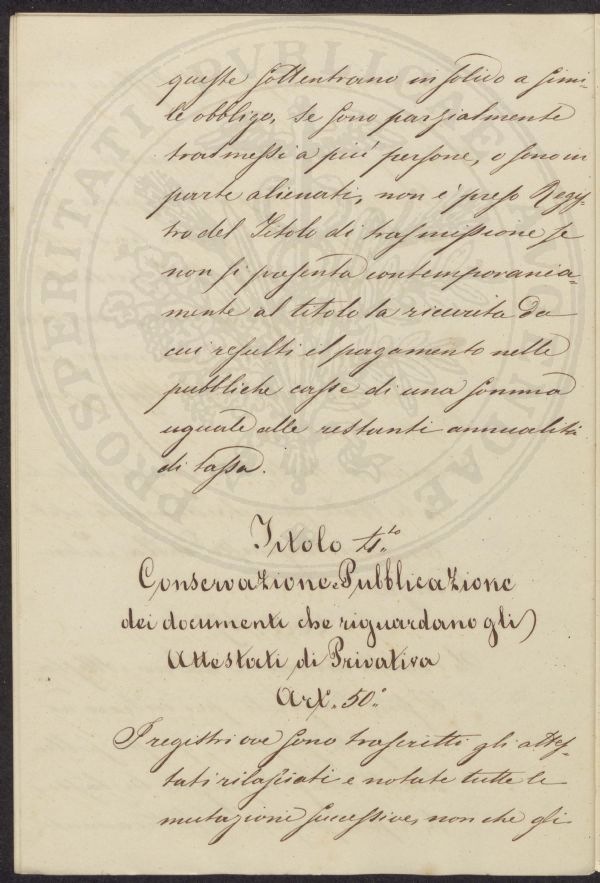 queste sottentrano in solido a simi-
le obbligo, se sono parzialmente
trasmessi a più persone, o sono in
parte alienati, non è preso Regis-
tro del Titolo di trasmissione se
non si presenta contemporania-
mente al titolo la ricevuta da
cui resulti il pagamento nelle
pubbliche casse di una somma
uguale alle restanti annualità
di tassa.
Titolo 4.to
Conservazione e Pubblicazione
dei documenti che riguardano gli
Attestati di Privativa
Art. 50.°
I registri ove sono trascritti gli attes-
tati rilasciati e notate tutte le
mutazioni successive, non che gli
PROSPERITATI PVBLICAE AVGENDAE